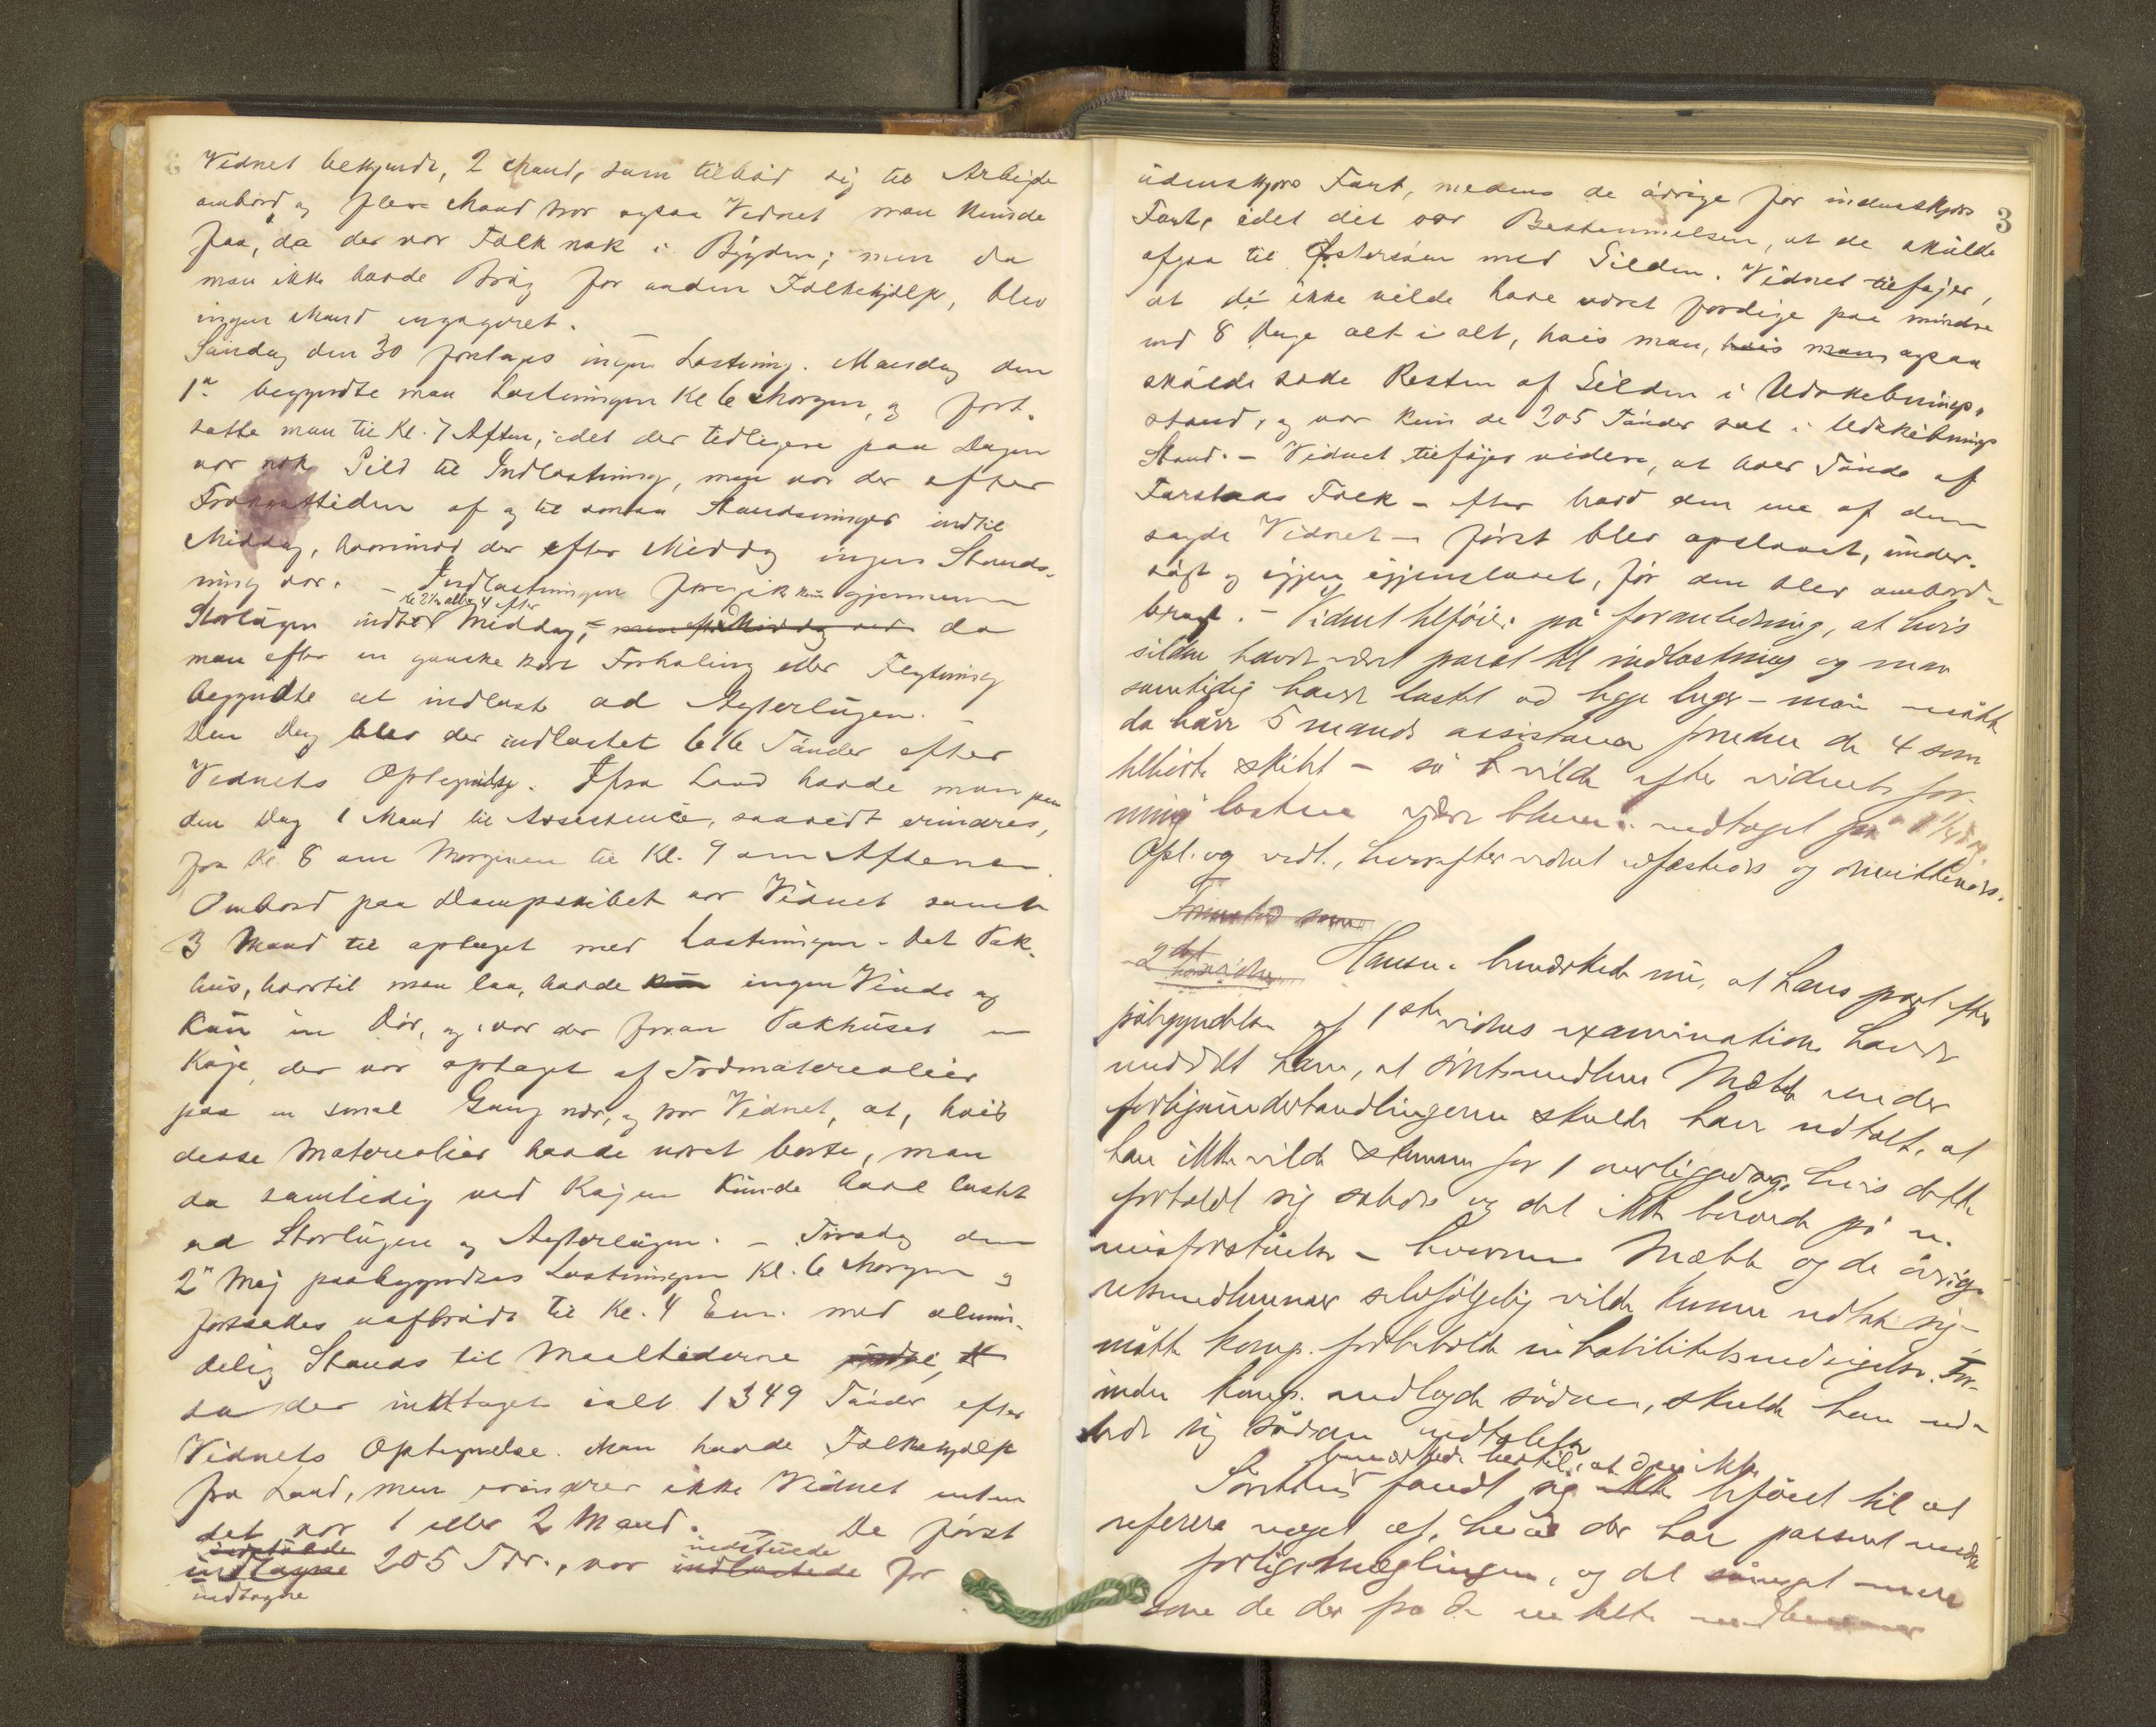 Vidnet bekjendt, 2 Mand, som tilbød sig til Arbejde
ombord og flere Mand tror ogsaa Vidnet man kunde
faa, da der var Folk nok i Byøen; men da
man ikke havde Brug for anden Folkehjælp, blev
ingen Mand engageret.
Søndag den 30 foretages ingen Lastning. Mandag den
1ste begyndte man Lastningen Kl 6 Morgen, og fort-
satte man til Kl. 7 Aften, idet der tidligere paa Dagen
var nok Sild til Indlastning, men var der efter
Frokosttiden af og til smaa Standsninger indtil
Middag, hvorimod der efter Middag ingen Stands-
ning var. – Indlastningen foregik kun gjennem
Kl 2½ eller 4 efter
Storlugen indtil Middag, men efter Middag ved da
man efter en ganske kort Forhaling eller Flytning
begyndte at indlaste ad Agterlugen. –
Den Dag blev der indlastet 616 Tønder efter
Vidnets Optegnelse. Ifra Land havde man paa
den Dag 1 Mand til Assistence, saavidt erindres,
fra Kl. 8 om Morgenen til Kl. 9 om Aftenen.
Ombord paa Dampskibet var Vidnet samt
3 Mand til optaget med Lastningen. Det Pak-
hus, hvortil man laa, havde kun ingen Vinde og
kun en Dør, og var der foran Pakhuset en
Kaje, der var optaget af Trdmaterialier
paa en smal Gang nær, og tror Vidnet, at, hvis
disse Materialier havde været borte, man
da samtidig ved Kajen kunde have lastet
ad Storlugen og Agterlugen. – Tirsdag den
2n Maj paabegyndtes Lastningen Kl. 6 Morgen og
fortsattes uafbrudt til Kl. 4 Em. med almin-
delig Stands til Maaltiderne
da der indtaget ialt 1349 Tønder efter
Vidnets Optegnelse. Man havde Folkehjælp
fra Land, men erindrer ikke Vidnet enten
det var 1 eller 2 Mand. De først
nedstuede
indtagne 205 Tdr., var indlastede for
indtagne
3
udenskjærs Fart, medens de øvrige for indenskjærs
Fart, idet det var Bestemmelsen, at de skulde
afgaa til Østersøen med Silden. Vidnet tilføjer,
at de ikke vilde have været færdige paa mindre
end 8 Dage alt i alt, hvis man, hvis man ogsaa
skulde sætte Resten af Silden i Udskibnings-
stand, og var kun de 205 Tønder sat i Udskibnings
Stand. – Vidnet tilføjer videre, at hver Tønde af
Farstads Folk – efter hvad den ene af dem
sagde Vidnet – først blev opslaaet, under-
søgt og igjen igjenslaaet, før den blev ombord-
bragt. – Vidnet tilføier på foranledning, at hvis
silden havde været parat til indlastning og man
samtidig havde lastet ad begge luger – man måtte
da havt 5 mands assistance foruden de 4 som
tilhørte skibet – så vilde efter vidnets for-
ning lasten være bleven indtaget på 1½ dag.
Opl. og vedt., hvorefter vidnet edfæstedes og dimitteredes.
Fremstod som
2det
hovedvidne Hansen bemærkede nu, at hans part efter
påbegyndelsen af 1ste vidnes examination havde
meddelt ham, at søretsmedlem Mæhle under
forligsunderhandlingerne skulde have udtalt, at
han ikke vilde stemme for 1 overliggedag, hvis dette
forholdt sig således og det ikke beroede på en
misforståelse – hvorom Mæhle og de øvrige
retsmedlemmer selvfølgelig vilde kunne udtale sig –
måtte komp. forbeholde inhabilitetsindsigelse. For-
inden komp. nedlagde sådan, skulde han ud-
bede sig sådan udtalelse
bemærkede hertil, at den ikke
Søretten fandt sig ikke beføiet til at
referere noget af, hvad der har passeret under
forligsmæglingen, og det såmeget mere
som de der fra de enkelte medlemmer